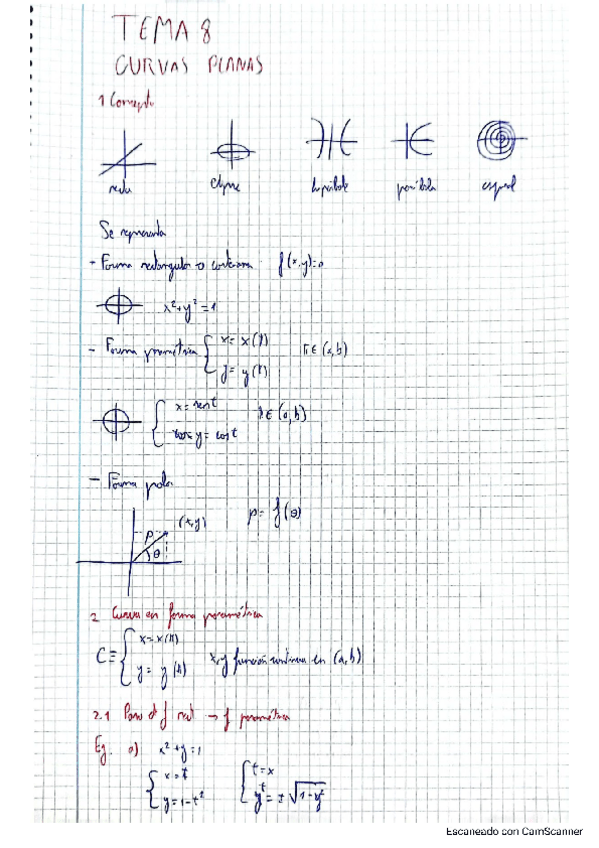 TEMA 8
CURVAS PLANAS
1 Concepto
recta elipse hipérbole parábola espiral
Se representa
- Forma rectangular o cartesiana f(x,y)=0
x²+y²=1
- Forma paramétrica { x = x(t) t ∈ (a,b)
y = y(t)
{ x = sen t t ∈ (a,b)
y = cos t
- Forma polar
(x,y) ρ = f(θ)
ρ
θ
2 Curva en forma paramétrica
C ≡ { x = x(t)
y = y(t) x,y función continua en (a,b)
2.1 Paso de f rect → f paramétrica
Eg. a) x²+y=1
{ x = t { t = x
y = 1-t² y = ± √1-y²
Escaneado con CamScanner